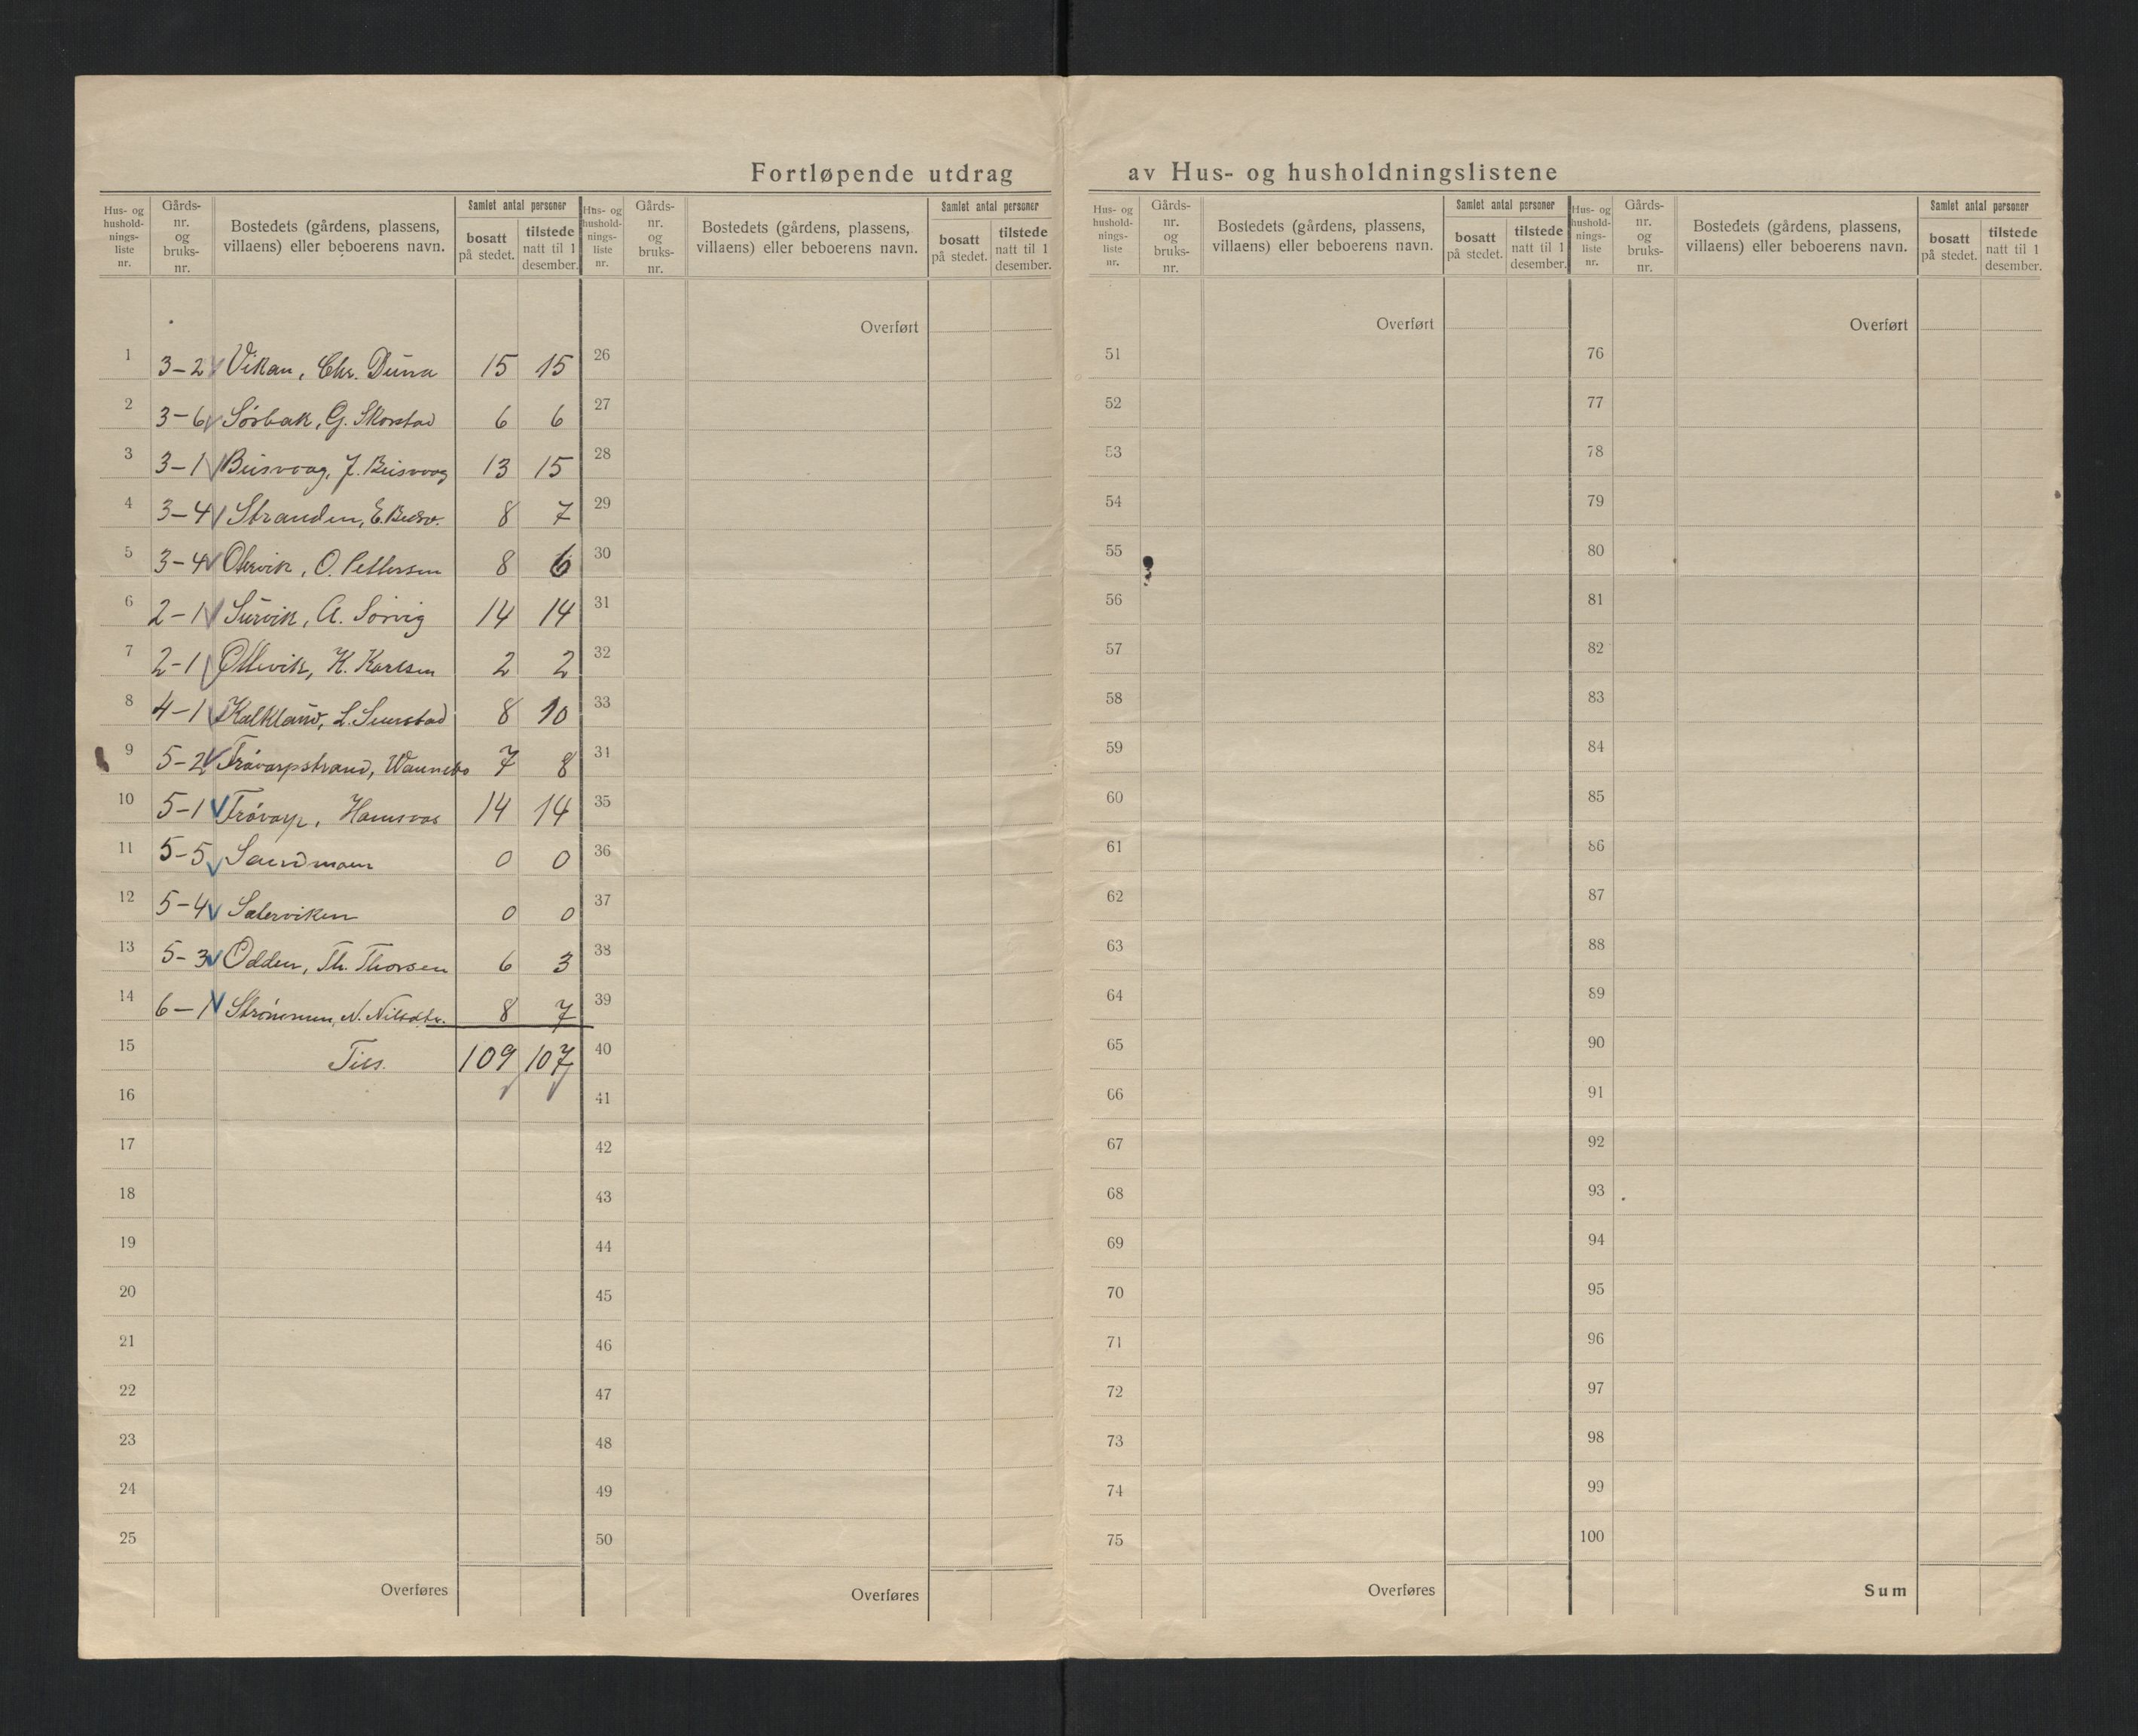 Fortløpende utdrag av Hus- og husholdningslistene
Hus- og hushold-nings-liste nr. Gårds-nr. og bruks-nr. Bostedets (gårdens, plassens, villaens) eller beboerens navn. Samlet antal personer bosatt på stedet. tilstede natt til 1 desember.
Hus- og hushold-nings-liste nr. Gårds-nr. og bruks-nr. Bostedets (gårdens, plassens, villaens) eller beboerens navn. Samlet antal personer bosatt på stedet. tilstede natt til 1 desember.
Hus- og hushold-nings-liste nr. Gårds-nr. og bruks-nr. Bostedets (gårdens, plassens, villaens) eller beboerens navn. Samlet antal personer bosatt på stedet. tilstede natt til 1 desember.
Hus- og hushold-nings-liste nr. Gårds-nr. og bruks-nr. Bostedets (gårdens, plassens, villaens) eller beboerens navn. Samlet antal personer bosatt på stedet. tilstede natt til 1 desember.
Overført Overført Overført
1 3-2 Vikan, Chr. Duna 15 15 26 51 76
2 3-6 Sørbak, G. Skorstad 6 6 27 52 77
3 3-1 13 15 28 53 78
4 3-4 Stranden, E. 8 7 29 54 79
5 3-4 O. Pettersen 8 6 30 55 80
6 2-1 Survik, A. Sørvig 14 14 31 56 81
7 2-1 Ottervik, K. Karlsen 2 2 32 57 82
8 4-1 Kalkland, L. 8 10 33 58 83
9 5-2 Trøvarpstrand, Wannebo 7 8 34 59 84
10 5-1 Trøvarp, Hamsvas 14 14 35 60 85
11 5-5 Sandmoen 0 0 36 61 86
12 5-4 Saterviken 0 0 37 62 87
13 5-3 Odden, Th. Thorsen 6 3 38 63 88
14 6-1 Strømmen, N. 8 7 39 64 89
15 Tils. 109 107 40 65 90
16 41 66 91
17 42 67 92
18 43 68 93
19 44 69 94
20 45 70 95
21 46 71 96
22 47 72 97
23 48 73 98
24 49 74 99
25 50 75 100
Overføres Overføres Overføres Sum